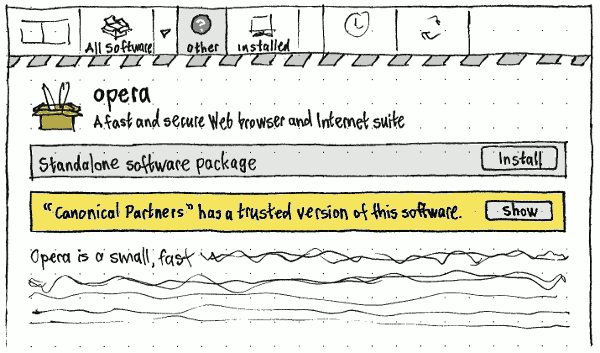 All Software
other
installed
opera
A fast and secure Web browser and Internet suite
Standalone software package
Install
"Canonical Partners" has a trusted version of this software.
Show
Opera is a small, fast